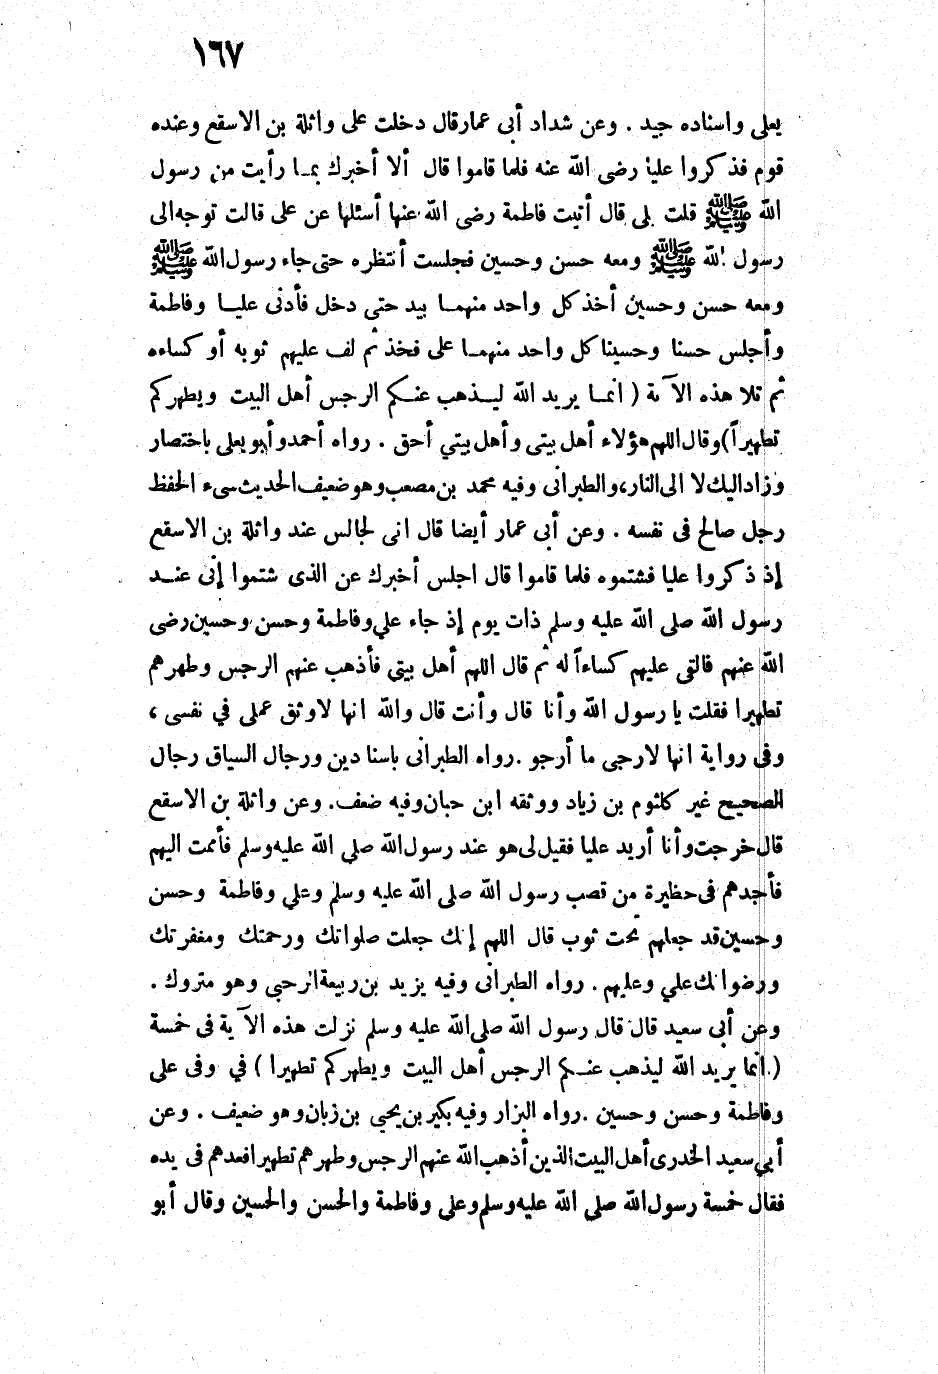 ١٦٧
يعلى واسناده جيد . وعن شداد أبى عمار قال دخلت على واثلة بن الاسقع وعنده
قوم فذكروا عليا رضى الله عنه فلما قاموا قال ألا أخبرك بمـا رأيت من رسول
الله ﷺ قلت بلى قال أتيت فاطمة رضى الله عنها أسئلها عن على قالت توجه الى
رسول الله ﷺ ومعه حسن وحسين فجلست أنتظره حتى جاء رسول الله ﷺ
ومعه حسن وحسين أخذ كل واحد منهمـا بيد حتى دخل فأدنى عليـا وفاطمة
وأجلس حسنا وحسينا كل واحد منهمـا على فخذ ثم لف عليهم ثوبه أو كساءه
ثم تلا هذه الآية ( انمـا يريد الله ليـذهب عنـكم الرجس أهل البيت ويطهركم
تطهيراً) وقال اللهم هؤلاء أهل بيتى وأهل بيتي أحق . رواه أحمد وأبو يعلى باختصار
وزاد اليك لا الى النار، والطبرانى وفيه محمد بن مصعب وهو ضعيف الحديث سىء الحفظ
رجل صالح فى نفسه . وعن أبى عمار أيضا قال انى لجالس عند واثلة بن الاسقع
إذ ذكروا عليا فشتموه فلما قاموا قال اجلس أخبرك عن الذى شتموا إنى عنـد
رسول الله صلى الله عليه وسلم ذات يوم إذ جاء علي وفاطمة وحسن وحسين رضى
الله عنهم فالقى عليهم كساءاً له ثم قال اللهم أهل بيتي فأذهب عنهم الرجس وطهرهم
تطهيرا فقلت يا رسول الله وأنا قال وأنت قال والله انها لاوثق عملى في نفسى ،
وفى رواية انها لارجى ما أرجو . رواه الطبرانى باسنادين ورجال السياق رجال
الصحيح غير كلثوم بن زياد ووثقه ابن حبان وفيه ضعف. وعن واثلة بن الاسقع
قال خرجت وأنا أريد عليا فقيل لى هو عند رسول الله صلى الله عليه وسلم فأممت اليهم
فأجدهم فى حظيرة من قصب رسول الله صلى الله عليه وسلم وعلي وفاطمة وحسن
وحسين قد جعلهم تحت ثوب قال اللهم إنك جعلت صلواتك ورحمتك ومغفرتك
ورضوانك علي وعليهم . رواه الطبرانى وفيه يزيد بن ربيعة الرحبي وهو متروك .
وعن أبى سعيد قال قال رسول الله صلى الله عليه وسلم نزلت هذه الآية فى خمسة
( انما يريد الله ليذهب عنـكم الرجس أهل البيت ويطهركم تطهيرا ) في وفى على
وفاطمة وحسن وحسين . رواه البزار وفيه بكير بن يحيي بن زبان وهو ضعيف . وعن
أبي سعيد الخدرى أهل البيت الذين أذهب الله عنهم الرجس وطهرهم تطهيرا فعدهم فى يده
فقال خمسة رسول الله صلى الله عليه وسلم وعلي وفاطمة والحسن والحسين وقال أبو